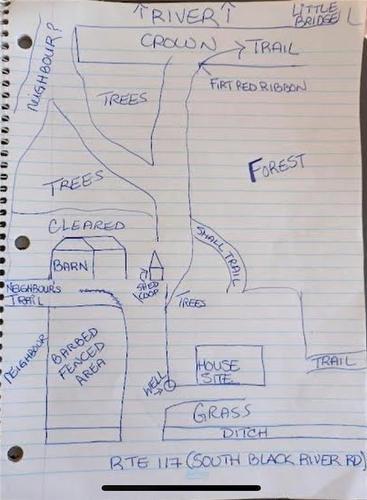 ↑RIVER↑
LITTLE
BRIDGE
CROWN
TRAIL
NEIGHBOUR?
TREES
FIRT RED RIBBON
FOREST
TREES
SMALL TRAIL
CLEARED
BARN
SHED
COOP
NEIGHBOURS
TRAIL
TREES
NEIGHBOUR
BARBED
FENCED
AREA
HOUSE
SITE
TRAIL
WELL
GRASS
DITCH
RTE 117 (SOUTH BLACK RIVER RD)